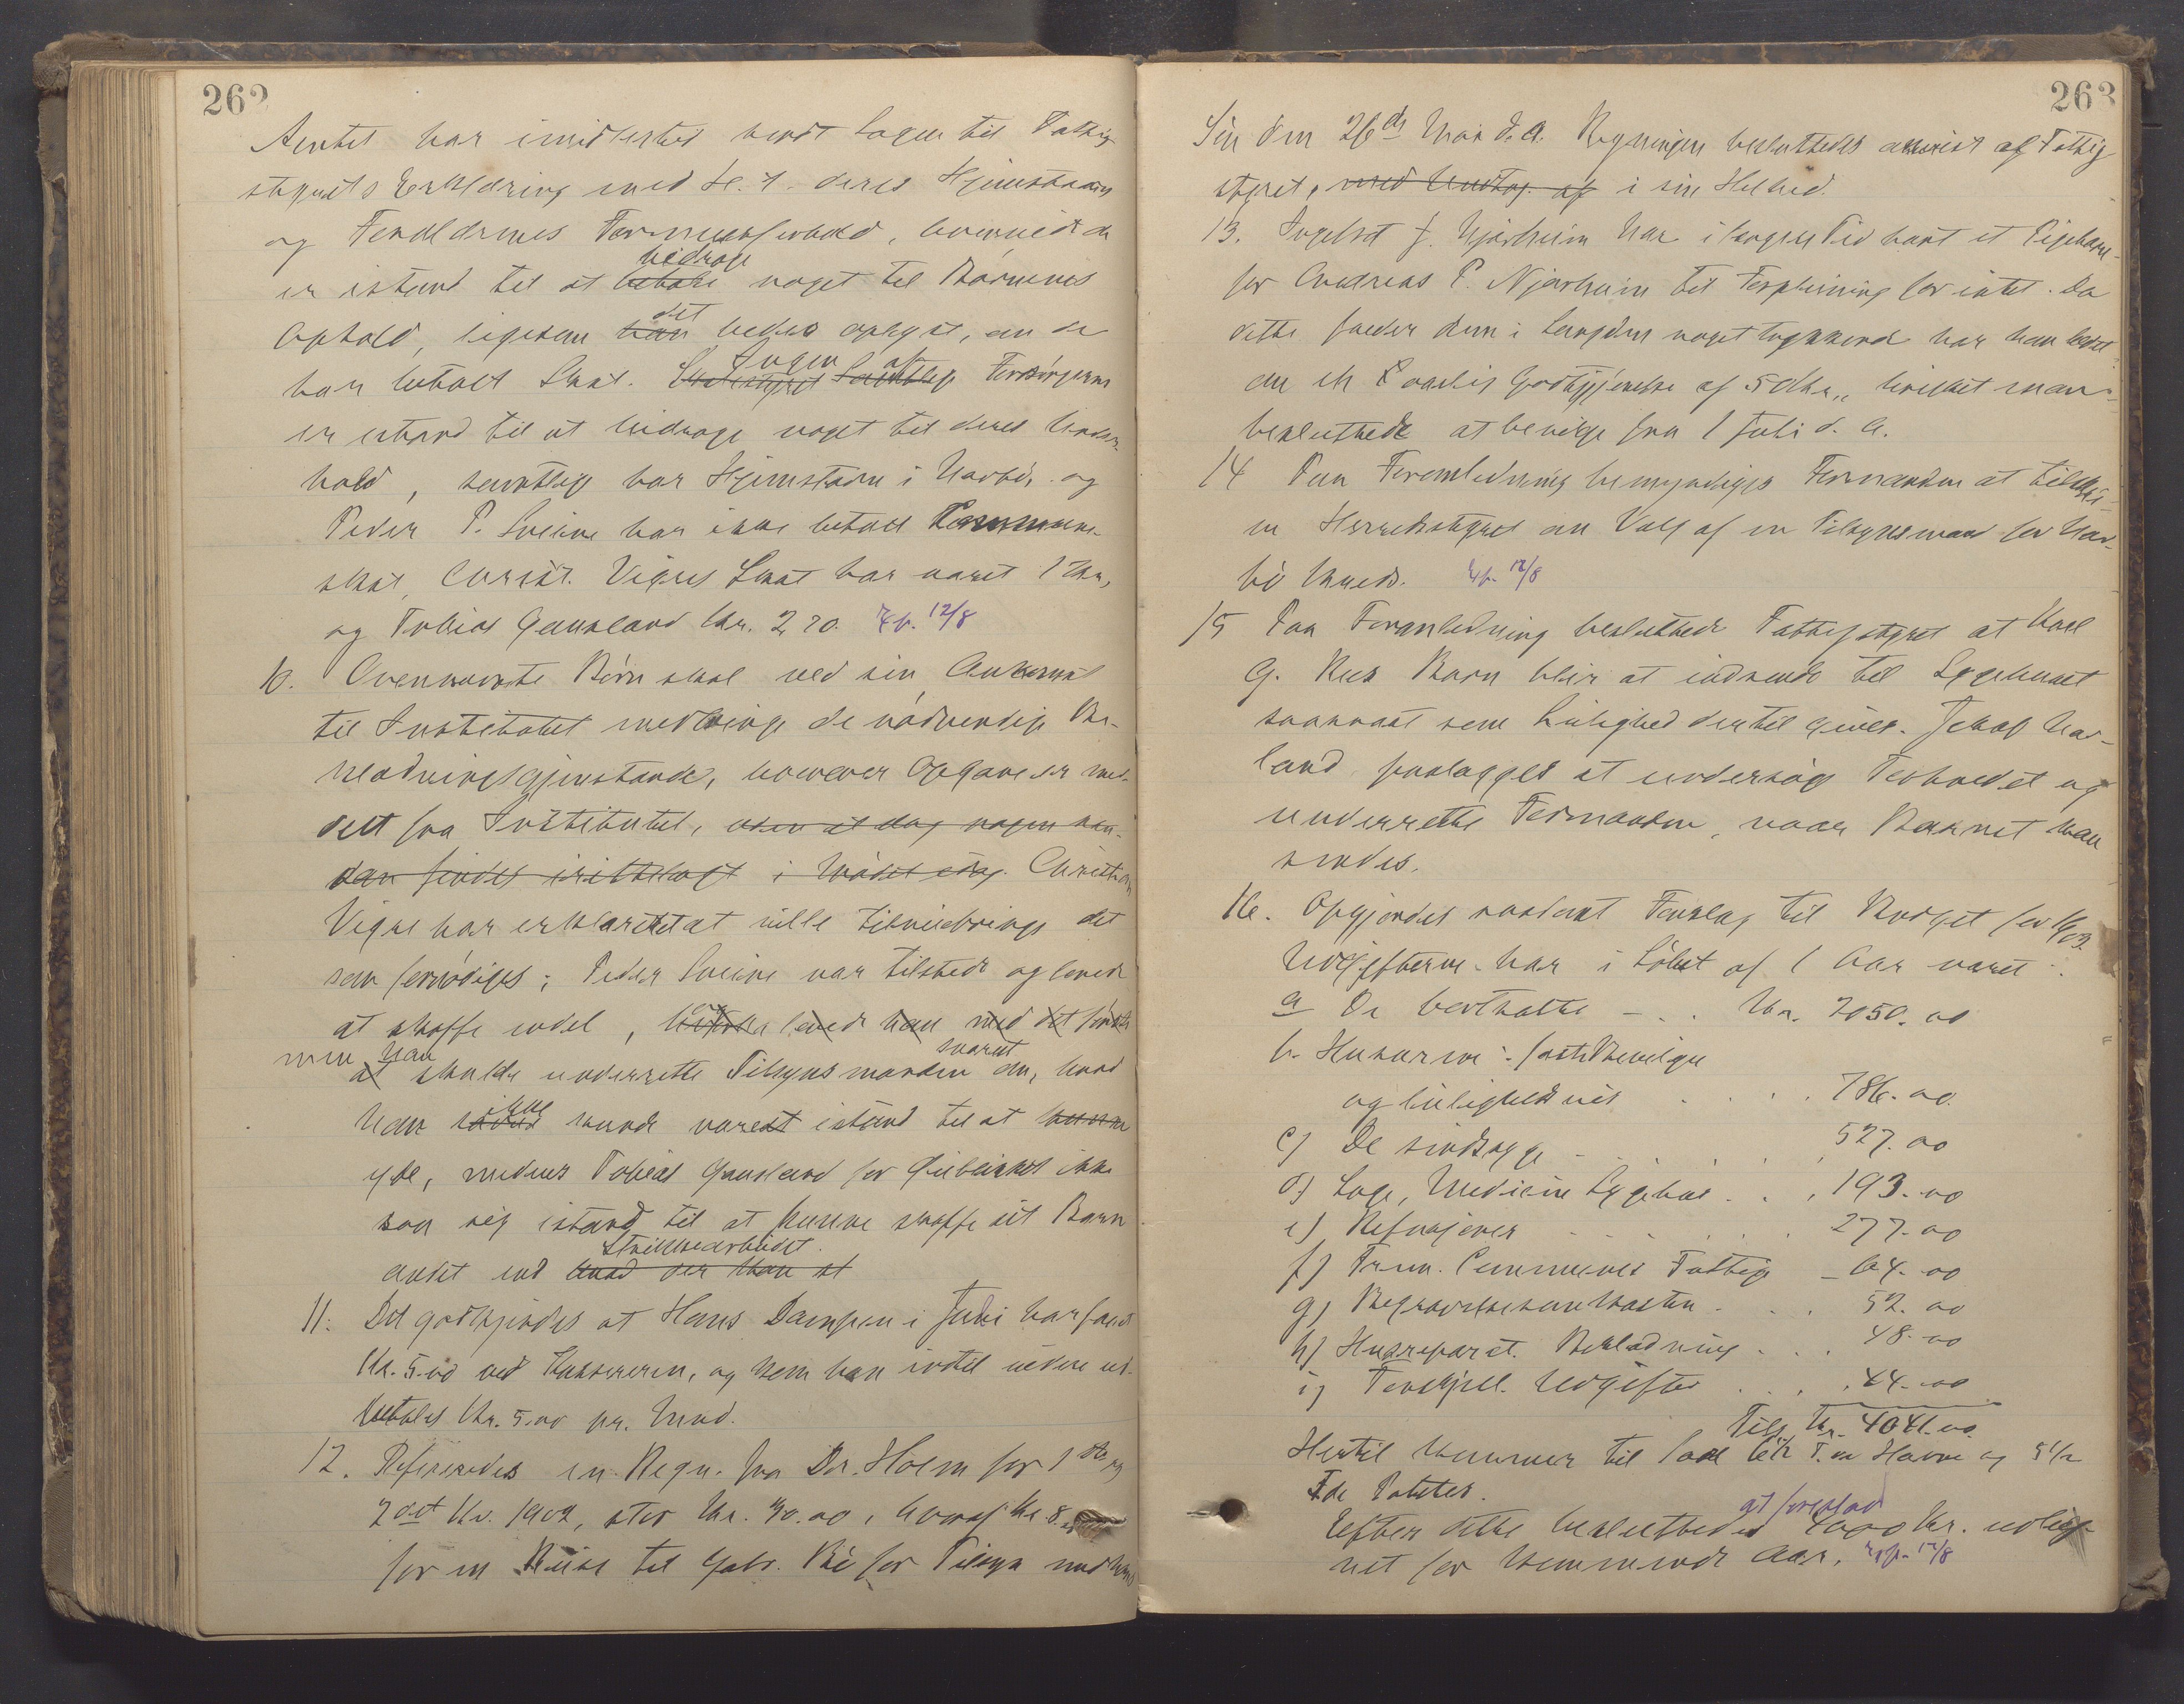 262
Amtet har imidlertid sendt Sagen til Fattig-
styrets Erklæring med H. t. deres Hjemstavn
og Forældrenes Formuesforhold, hvorvidt de
er istand til at bidrage noget til Børnenes
Ophold, ligesom det bedes oplyst, om de
har betalt Skat. Ingen af Forsørgerne
er istand til at bidrage noget til deres Under-
hold, samtlige har Hjemstavn i Nærbø og
Peder P. Sveine har ikke betalt Kommune-
skat, Christ. Vigres Skat har været 1 Kr.,
og Tobias Gausland Kr. 2,70. Exp. 12/8
10. Ovennævnte Børn skal ved sin Ankomst
til Institutet medbringe de nødvendige Be-
klædningsgjenstande, hvorover Opgave er med-
delt fra Institutet, uden at dog nogen saa-
dan findes irettelagt i Mødet idag. Christian
Vigre har erklæret at ville tilveiebringe det
som fornødiges; Peder Sveine var tilstede og lovede
at skaffe endel, lovede han med det første
men han skulde underrette Tilsynsmanden snarest om, hvad
han ikke kunde være istand til at
yde, medens Tobias Gausland for Øieblikket ikke
saa sig istand til at kunne skaffe sit Barn
andet end Strikkearbeidet. hvad der kan st
11. Det godkjendes at Hans Dampen i Juli har faaet
Kr. 5.00 ved Kassereren, og som han indtil videre ud-
betales Kr. 5.00 pr. Mnd.
12. Refereredes en Regn. fra Dr. Holm for 1ste og
2det Kv. 1902, stor Kr. 40.00, hvoraf Kr. 8.
for en Reise til Gabr. Bø for Tilsyn med hans
263
Søn den 26de Mai d. A. Regningen besluttedes anvist af Fattig
styret, med Undtag. af i sin Helhed.
13. Ingebret J. Njærheim har i længere Tid havt et Pigebarn
for Andreas P. Njærheim til Forpleining for intet. Da
dette falder dem i Længden noget trykkende har han bedet
om en aarlig Godtgjørelse af 50 Kr., hvilket man
besluttede at bevilge fra 1 Juli d. A.
14 Paa Foranledning bemyndiges Formanden at tilskri-
ve Herredsstyret om Valg af en Tilsynsmand for Nær-
bø Kreds. Exp. 12/8
15 Paa Foranledning besluttede Fattigstyret at Karl
G. Rees Barn blir at indsende til Sygehuset
saasnart som Leilighed dertil gives. Jakob Nær-
land paalægges at undersøge Forholdet og
underrette Formanden, naar Barnet kan
sendes.
16. Opgjordes saadant Forslag til Budget for 1903.
Udgifterne har i Løbet af 1 Aar været:
a De bortsatte - . . Kr. 2050.00
b. Husarme: faste Bevilgn
og leilighedsvis . . . . 786.00
c) De sindssyge . . . . 527.00
d) Læge, Medicin Sygehus . . . 193.00
e) Refusjoner . . . . . 277.00
f) Frem. Communes Fattige - 64.00
g) Begravelsesomkostn. . . . 52.00
h) Husreparat. Beklædning . . . 48.00
i) Forskjell. Udgifter . . . . 44.00
Tils. Kr. 4041.00
Hertil kommer til Saad T. Havre og 5 1/2
Tde Poteter.
Efter dette besluttedes at foreslaa 4000 Kr. udlig-
net for kommende Aar. Exp. 12/8